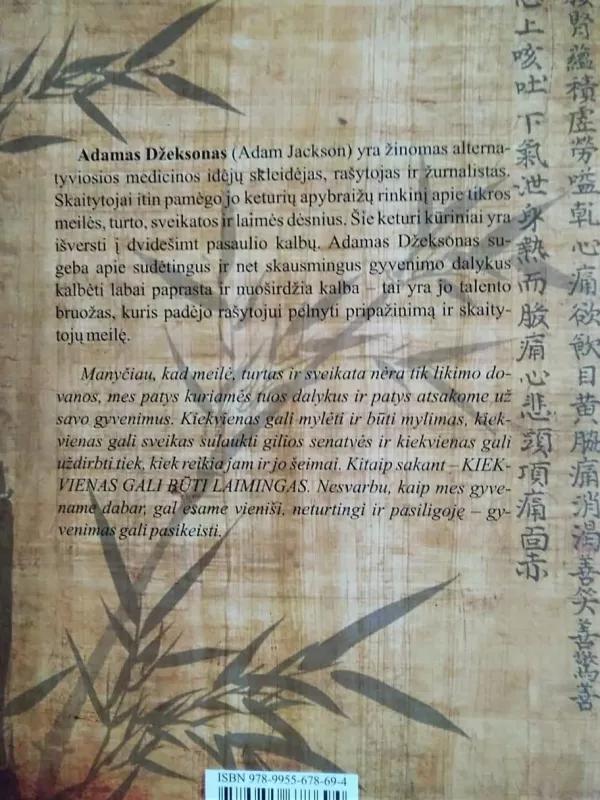 Adamas Džeksonas (Adam Jackson) yra žinomas alterna-
tyviosios medicinos idėjų skleidėjas, rašytojas ir žurnalistas.
Skaitytojai itin pamėgo jo keturių apybraižų rinkinį apie tikros
meilės, turto, sveikatos ir laimės dėsnius. Šie keturi kūriniai yra
išversti į dvidešimt pasaulio kalbų. Adamas Džeksonas su-
geba apie sudėtingus ir net skausmingus gyvenimo dalykus
kalbėti labai paprasta ir nuoširdžia kalba – tai yra jo talento
bruožas, kuris padėjo rašytojui pelnyti pripažinimą ir skaity-
tojų meilę.
Manyčiau, kad meilė, turtas ir sveikata nėra tik likimo do-
vanos, mes patys kuriamės tuos dalykus ir patys atsakome už
savo gyvenimus. Kiekvienas gali mylėti ir būti mylimas, kiek-
vienas gali sveikas sulaukti gilios senatvės ir kiekvienas gali
uždirbti tiek, kiek reikia jam ir jo šeimai. Kitaip sakant – KIEK-
VIENAS GALI BŪTI LAIMINGAS. Nesvarbu, kaip mes gyve-
name dabar, gal esame vieniši, neturtingi ir pasiligoję – gy-
venimas gali pasikeisti.
腎蘊積虛勞嗌乾心痛欲飲目黃脇痛消渴善笑善驚善
心上咳吐下氣泄身熱而腹痛心悲頭項痛面赤
ISBN 978-9955-678-69-4